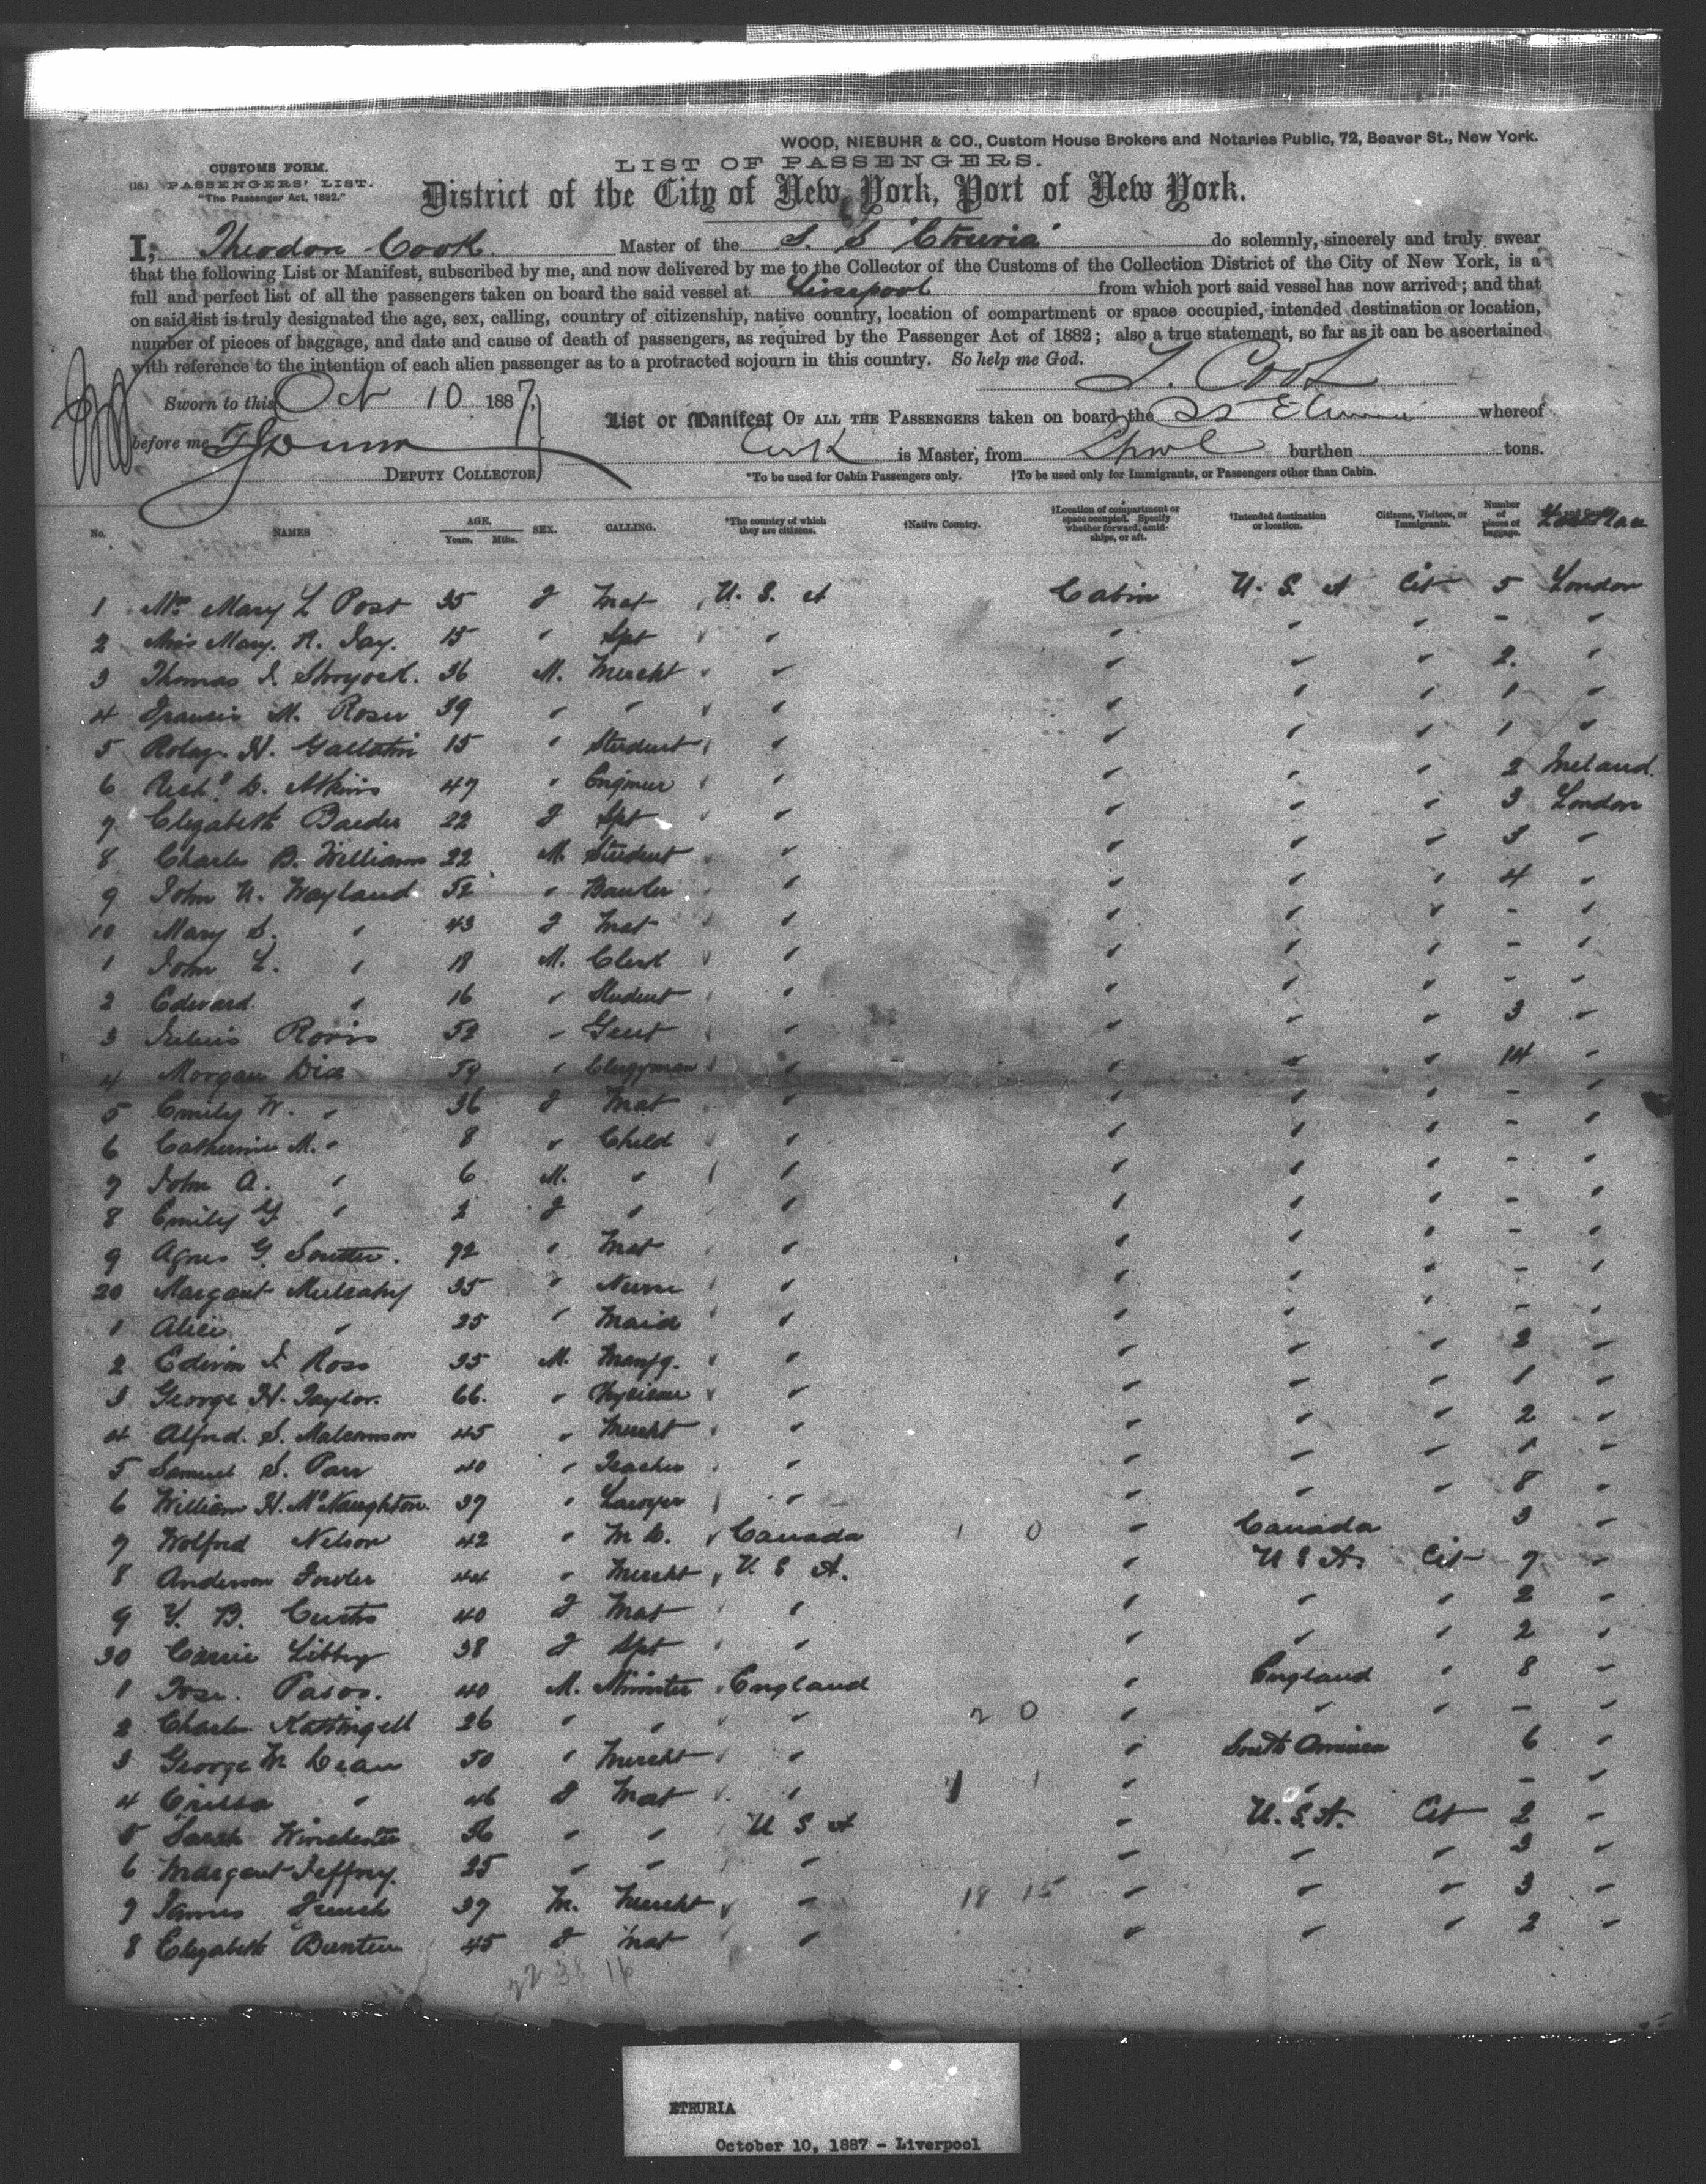 WOOD, NIEBUHR & CO., Custom House Brokers and Notaries Public, 72, Beaver St., New York.
CUSTOMS FORM.
LIST OF PASSENGERS.
(18.) PASSENGERS' LIST.
"The Passenger Act, 1882."
District of the City of New York, Port of New York.
I, Theodon Cook. Master of the S. S "Etruria" do solemnly, sincerely and truly swear
that the following List or Manifest, subscribed by me, and now delivered by me to the Collector of the Customs of the Collection District of the City of New York, is a
full and perfect list of all the passengers taken on board the said vessel at Liverpool from which port said vessel has now arrived; and that
on said list is truly designated the age, sex, calling, country of citizenship, native country, location of compartment or space occupied, intended destination or location,
number of pieces of baggage, and date and cause of death of passengers, as required by the Passenger Act of 1882; also a true statement, so far as it can be ascertained
with reference to the intention of each alien passenger as to a protracted sojourn in this country. So help me God.
T. Cook
Sworn to this Oct 10 1887,
List or Manifest OF ALL THE PASSENGERS taken on board the SS Etruria whereof
before me
Cook is Master, from Lpool burthen tons.
DEPUTY COLLECTOR
*To be used for Cabin Passengers only. †To be used only for Immigrants, or Passengers other than Cabin.
No. NAMES AGE. Years. Mths. SEX. CALLING. *The country of which they are citizens. †Native Country. †Location of compartment or space occupied. Specify whether forward, amidships, or aft. †Intended destination or location. Citizens, Visitors, or Immigrants. Number of pieces of baggage.
1 Mrs Mary L Post 35 F Mat U. S. A Cabin U. S. A Cit 5 London
2 Miss Mary. R. Jay. 15 " Spt " " " " - "
3 Thomas J. Shryock. 36 M. Mercht " " " " 2. "
4 Francis M. Roser 39 " " " " " " 1 "
5 H. Gallatin 15 " Student " " " " 1 "
6 Richd D. Atkins 47 " Engineer " " " " 2 Ireland.
7 Elizabeth Baeder 22 F Spt " " " " 3 London
8 Charles B. Williams 22 M. Student " " " " 3 "
9 John N. Wayland 52 " Banker " " " " 4 "
10 Mary S. " 43 F Mat " " " " - "
1 John L. " 18 M. Clerk " " " " - "
2 Edward. " 16 " Student " " " " - "
3 Julius 52 " Gent " " " " 3 "
4 Morgan Dix 59 " Clergyman " " " " 14 "
5 Emily W. " 36 F Mat " " " " - "
6 Catherine M. " 8 " Child " " " " - "
7 John A. " 6 M. " " " " " - "
8 Emily G " 2 F " " " " " - "
9 Agnes G. Soutter. 72 " Mat " " " " - "
20 Margaret Mulcahy 35 " Nurse " " " " - "
1 Alice " 25 " Maid " " " " - "
2 Edwin J. Ross 35 M. Manfg. " " " " 2 "
3 George H. Taylor. 66. " Physician " " " " 1 "
4 Alfred. S. Malcomson 45 " Mercht " " " " 2 "
5 Samuel S. Parr 40 " Teacher " " " " 1 "
6 William H. McNaughton. 37 " Lawyer " " " " 8 "
7 Wolfred Nelson 42 " M D. Canada 1 0 " Canada 3 "
8 Anderson Fowler 44 " Mercht U S A. " U S A. Cit 7 "
9 Y. B. Curtis 40 F Mat " " " " 2 "
30 Carrie Libbey 38 F Spt " " " " 2 "
1 Jose. Pasos. 40 M. Minister England " England " 8 "
2 Charles 26 " " " 2 0 " " - "
3 George M Dean 50 " Mercht " " South America 6 "
4 " 46 F Mat " 1 1 " " - "
5 Sarah Winchester 56 " " U S A " U. S. A. Cit 2 "
6 Margaret Jeffrey. 25 " " " " " " 3 "
7 James French 37 M. Mercht " 18 15 " " " 3 "
8 Elizabeth Bunten 45 F Mat " " " " 2 "
22 38 16
ETRURIA
October 10, 1887 - Liverpool